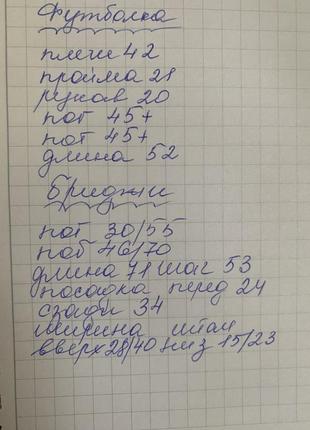 Футболка
плечи 42
пройма 21
рукав 20
пог 45+
пот 45+
длина 52
Бриджи
пот 30/55
поб 46/70
длина 71 шаг 53
посадка перед 24
сзади 34
ширина штан
вверх 28/40 низ 15/23